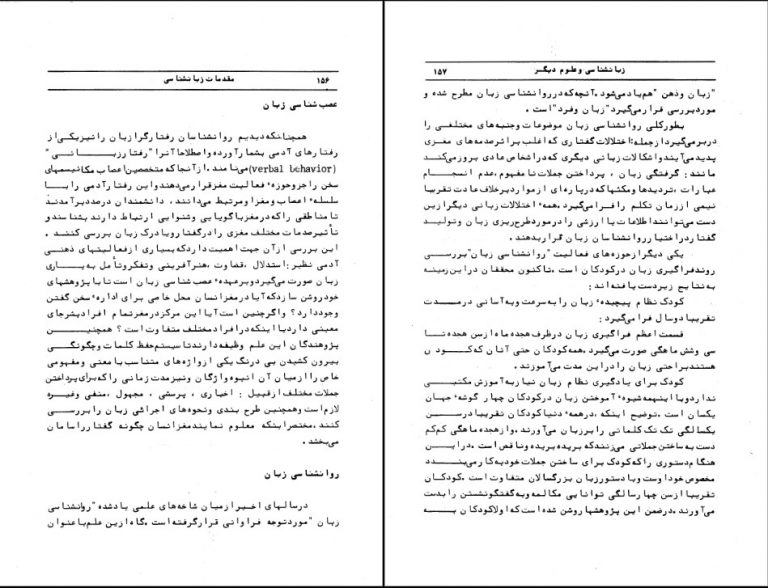 ۱۵۶ مقدمات زبانشناسی
عصب شناسی زبان
همچنانکه دیدیم روانشناسان رفتارگرا زبان را نیز یکی از
رفتارهای آدمی بشمار آورده و اصطلاحا آنرا "رفتار زبـــانـــی"
(verbal behavior) می‌نامند. از آنجا که متخصصین اعصاب مکانیسمهای
سخن را جزو حوزه‌ء فعالیت مغز قرار می‌دهند و این رفتار آدمی را بـا
سلسله‌ء اعصاب و مغز او مرتبط می‌دانند، دانشمندان درصدد برآمدند
تا مناطقی را که در مغز با گویایی و شنوایی ارتباط دارند بشناسند و
تأثیر صدمات مختلف مغزی را در گفتار و یا درک زبان بررسی کننـد.
این بررسی از آن جهت اهمیت دارد که بسیاری از فعالیتهای ذهنی
آدمی نظیر: استدلال، قضاوت، هنرآفرینی و تفکر و تأمل به یـــاری
زبان صورت می‌گیرد و برعهده‌ء عصب شناسی زبان است تا با پژوهشهای
خود روشن سازد که آیا در مغز انسان محل خاصی برای اداره‌ء سخن گفتن
وجود دارد؟ و اگر چنین است آیا این مرکز در مغز تمام افراد بشر جای
معینی دارد یا اینکه در افراد مختلف متفاوت است؟ همچنیـــن
پژوهندگان این علم وظیفه دارند تا سیستم حفظ کلمات و چگونگـی
بیرون کشیدن بی درنگ یکی از واژه‌های متناسب با معنی و مفهومی
خاص را از میان آن انبوه واژگان و نیز مدت زمانی را که برای پرداختن
جملات مختلف از قبیل: اخباری، پرسشی، مجهول، منفی و غیـره
لازم است و همچنین طرح بندی و نحوه‌های اجرائی زبان را بررسـی
کنند. مختصر اینکه معلوم نمایند مغز انسان چگونه گفتار را سامان
می‌بخشد.
روانشناسی زبان
در سالهای اخیر از میان شاخه‌های علمی یاد شده "روانشناسی
زبان" مورد توجه فراوانی قرار گرفته است. گاه از این علم با عنوان
زبانشناسی و علوم دیگـر ۱۵۷
"زبان و ذهن" هم یاد می‌شود. آنچه که در روانشناسی زبان مطرح شده و
مورد بررسی قرار می‌گیرد "زبان و فرد" است.
بطور کلی روانشناسی زبان موضوعات و جنبه‌های مختلفی را
در بر می‌گیرد از جمله: اختلالات گفتاری که اغلب بر اثر صدمه‌های مغزی
پدید می‌آیند و اشکالات زبانی دیگری که در اشخاص عادی بروز می‌کند
مانند: گرفتگی زبان، پرداختن جملات نامفهوم، عدم انسجـام
عبارات، تردیدها و مکثها که در پاره‌ای از موارد برخلاف عادت تقریبا
نیمی از زمان تکلم را فرا می‌گیرد. همه‌ء اختلالات زبانی دیگر از این
دست می‌توانند اطلاعات با ارزشی را در مورد طرح‌ریزی زبان و تولیـد
گفتار در اختیار روانشناسان زبان قرار بدهند.
یکی دیگر از حوزه‌های فعالیت "روانشناسی زبان" بررسـی
روند فراگیری زبان در کودکان است. تاکنون محققان در این زمینه
به نتایج زیر دست یافته‌اند:
کودک نظام پیچیده‌ء زبان را به سرعت و به آسانی در مـــدت
تقریبا دو سال فرا می‌گیرد:
قسمت اعظم فراگیری زبان در ظرف هجده ماه از سن هجده تـا
سی و شش ماهگی صورت می‌گیرد. همه کودکان حتی آنان که کـــود ن
هستند براحتی زبان را در این مدت می‌آموزند.
کودک برای یادگیری نظام زبان نیاز به آموزش مکتبـــی
ندارد و با اینهمه شیوه‌ء آموختن زبان در کودکان چهار گوشه‌ء جهان
یکسان است. توضیح اینکه، در همه‌ء دنیا کودکان تقریبا در ســن
یکسالگی تک تک کلماتی را بر زبان می‌آورند. و از هجده ماهگی کم‌کم
دست به ساختن جملاتی می‌زنند که بریده بریده و ناقص است. در ایـن
هنگام دستوری را که کودک برای ساختن جملات خود به کار می‌بنـــدد
مخصوص خود اوست و با دستور زبان بزرگسالان متفاوت است. کودکـان
تقریبا از سن چهار سالگی توانایی مکالمه و به گفتگو نشستن را بدست
می‌آورند. در ضمن این پژوهشها روشن شده است که اولا کودکان بـــه